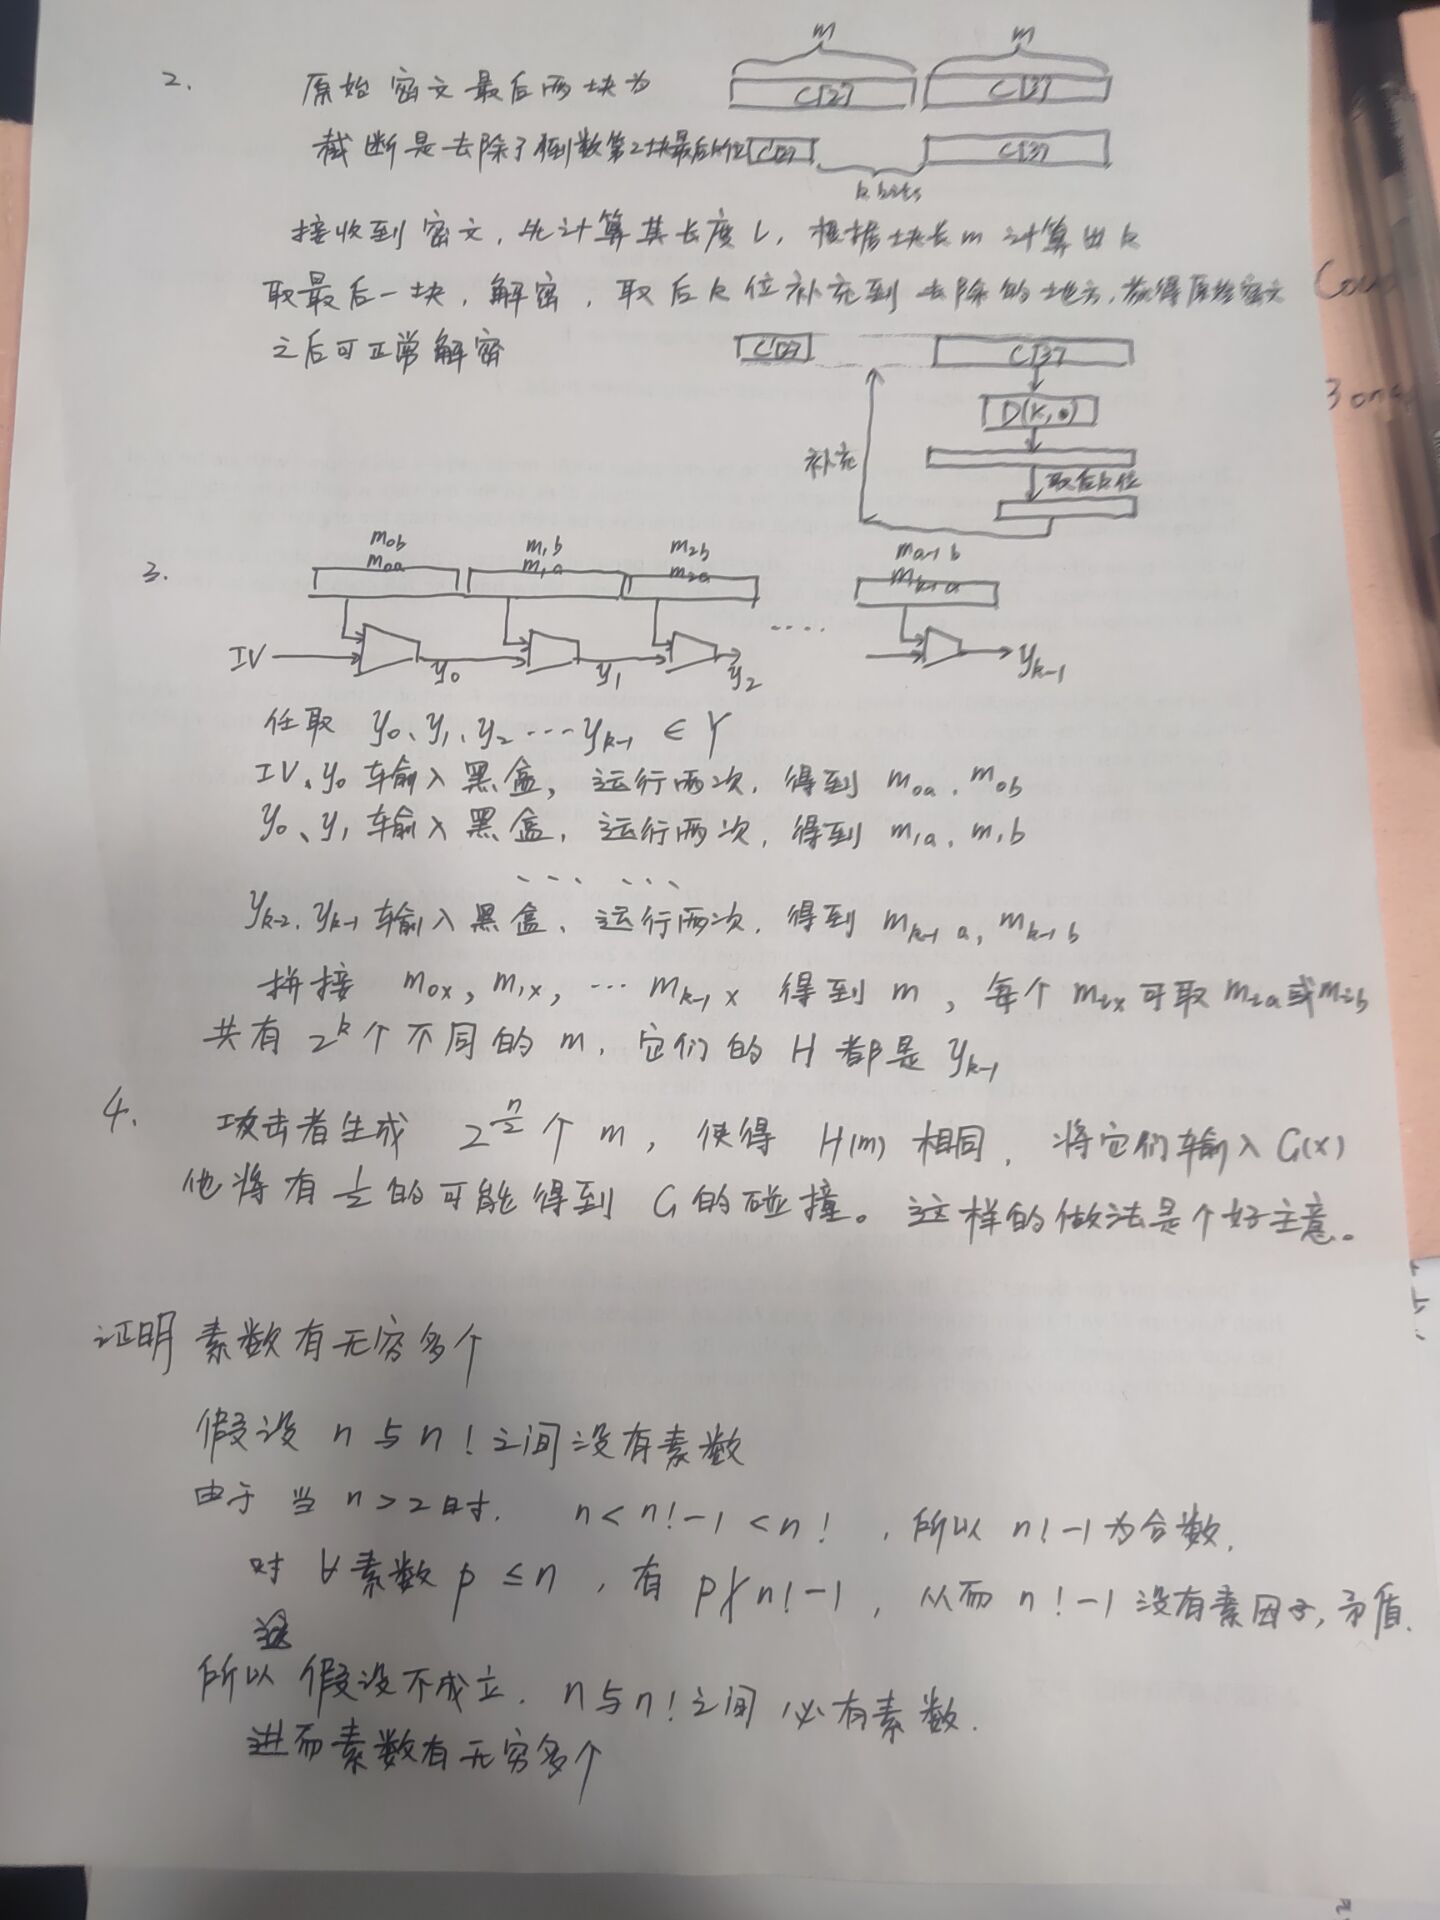 m m
2. 原始密文最后两块为 C[2] C[3]
截断是去除了倒数第2块最后的位 C[2] C[3]
k bits
接收到密文,先计算其长度 L, 根据块长 m 计算出 k
取最后一块,解密,取后 k 位补充到去除的地方,获得原始密文
之后可正常解密 C[2] C[3]
D(K,·)
补充 取后k位
3. m0b m1b m2b ma-1 b
m0a m1a m2a mk-1 a
....
IV y0 y1 y2 yk-1
任取 y0、y1、y2 ··· yk-1 ∈ Y
IV、y0 输入黑盒, 运行两次, 得到 m0a、m0b
y0、y1 输入黑盒, 运行两次, 得到 m1a、m1b
... ...
yk-2, yk-1 输入黑盒、运行两次, 得到 mk-1 a, mk-1 b
拼接 m0x, m1x, ··· mk-1 x 得到 m, 每个 mix 可取 mia 或 mib
共有 2^k 个不同的 m, 它们的 H 都是 yk-1
4. 攻击者生成 2^(n/2) 个 m, 使得 H(m) 相同, 将它们输入 G(x)
他将有 1/2 的可能得到 G 的碰撞。这样的做法是个好主意。
证明 素数有无穷多个
假设 n 与 n! 之间没有素数
由于 当 n>2 时, n < n!-1 < n! , 所以 n!-1 为合数.
对 ∀ 素数 p ≤ n , 有 p∤n!-1 , 从而 n!-1 没有素因子, 矛盾.
所以 假设不成立. n 与 n! 之间 必有素数.
进而素数有无穷多个